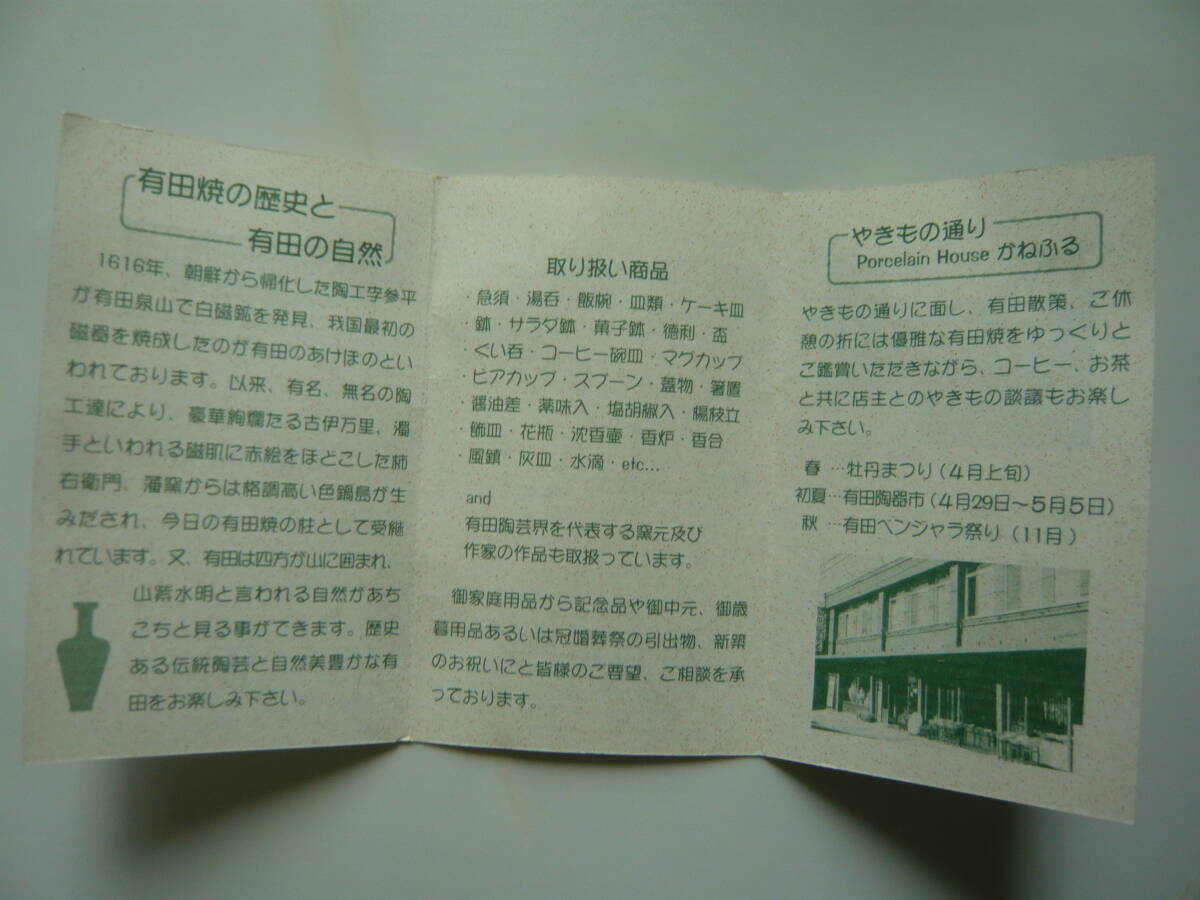 有田焼の歴史と
有田の自然
1616年、朝鮮から帰化した陶工字参平
が有田泉山で白磁鉱を発見、我国最初の
磁器を焼成したのが有田のあけぼのとい
われております。以来、有名、無名の陶
工達により、豪華絢爛たる古伊万里、濁
手といわれる磁肌に赤絵をほどこした柿
右衛門、藩窯からは格調高い色鍋島が生
みだされ、今日の有田焼の柱として受継
れています。又、有田は四方が山に囲まれ、
山紫水明と言われる自然があち
こちと見る事ができます。歴史
ある伝統陶芸と自然美豊かな有
田をお楽しみ下さい。
取り扱い商品
・急須・湯呑・飯碗・皿類・ケーキ皿
・鉢・サラダ鉢・菓子鉢・徳利・盃
・くい呑・コーヒー碗皿・マグカップ
・ビアカップ・スプーン・蓋物・箸置
・醤油差・薬味入・塩胡椒入・楊枝立
・飾皿・花瓶・沈香壷・香炉・香合
・風鎮・灰皿・水滴・etc...
and
有田陶芸界を代表する窯元及び
作家の作品も取扱っています。
御家庭用品から記念品や御中元、御歳
暮用品あるいは冠婚葬祭の引出物、新築
のお祝いにと皆様のご要望、ご相談を承
っております。
やきもの通り
Porcelain House かねふる
やきもの通りに面し、有田散策、ご休
憩の折には優雅な有田焼をゆっくりと
ご鑑賞いただきながら、コーヒー、お茶
と共に店主とのやきもの談議もお楽し
み下さい。
春 …牡丹まつり(4月上旬)
初夏…有田陶器市(4月29日～5月5日)
秋 …有田ベンジャラ祭り(11月)